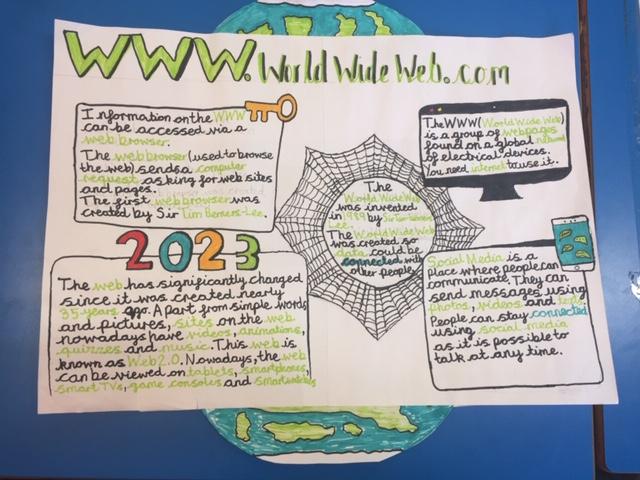 WWW. World Wide Web.com
Information on the WWW
can be accessed via a
web browser.
The web browser (used to browse
the web) sends a computer
request asking for web sites
and pages.
The first web browser was
created by Sir Tim Berners-Lee.
The
World Wide Web
was invented
in 1989 by Sir Tim-Berners
Lee.
The World Wide Web
was created so
data could be
connected with
other people.
The WWW (World Wide Web)
is a group of webpages
found on a global network
of electrical devices.
You need internet to use it.
2023
The web has significantly changed
since it was created nearly
35 years ago. A part from simple words
and pictures, sites on the web
nowadays have videos, animations,
quizzes and music. This web is
known as Web 2.0. Nowadays, the web
can be viewed on tablets, smartphones,
smart TVs, game consoles and smartwatches
Social Media is a
place where people can
communicate. They can
send messages using
photos, videos and texts.
People can stay connected
using social media
as it is possible to
talk at any time.